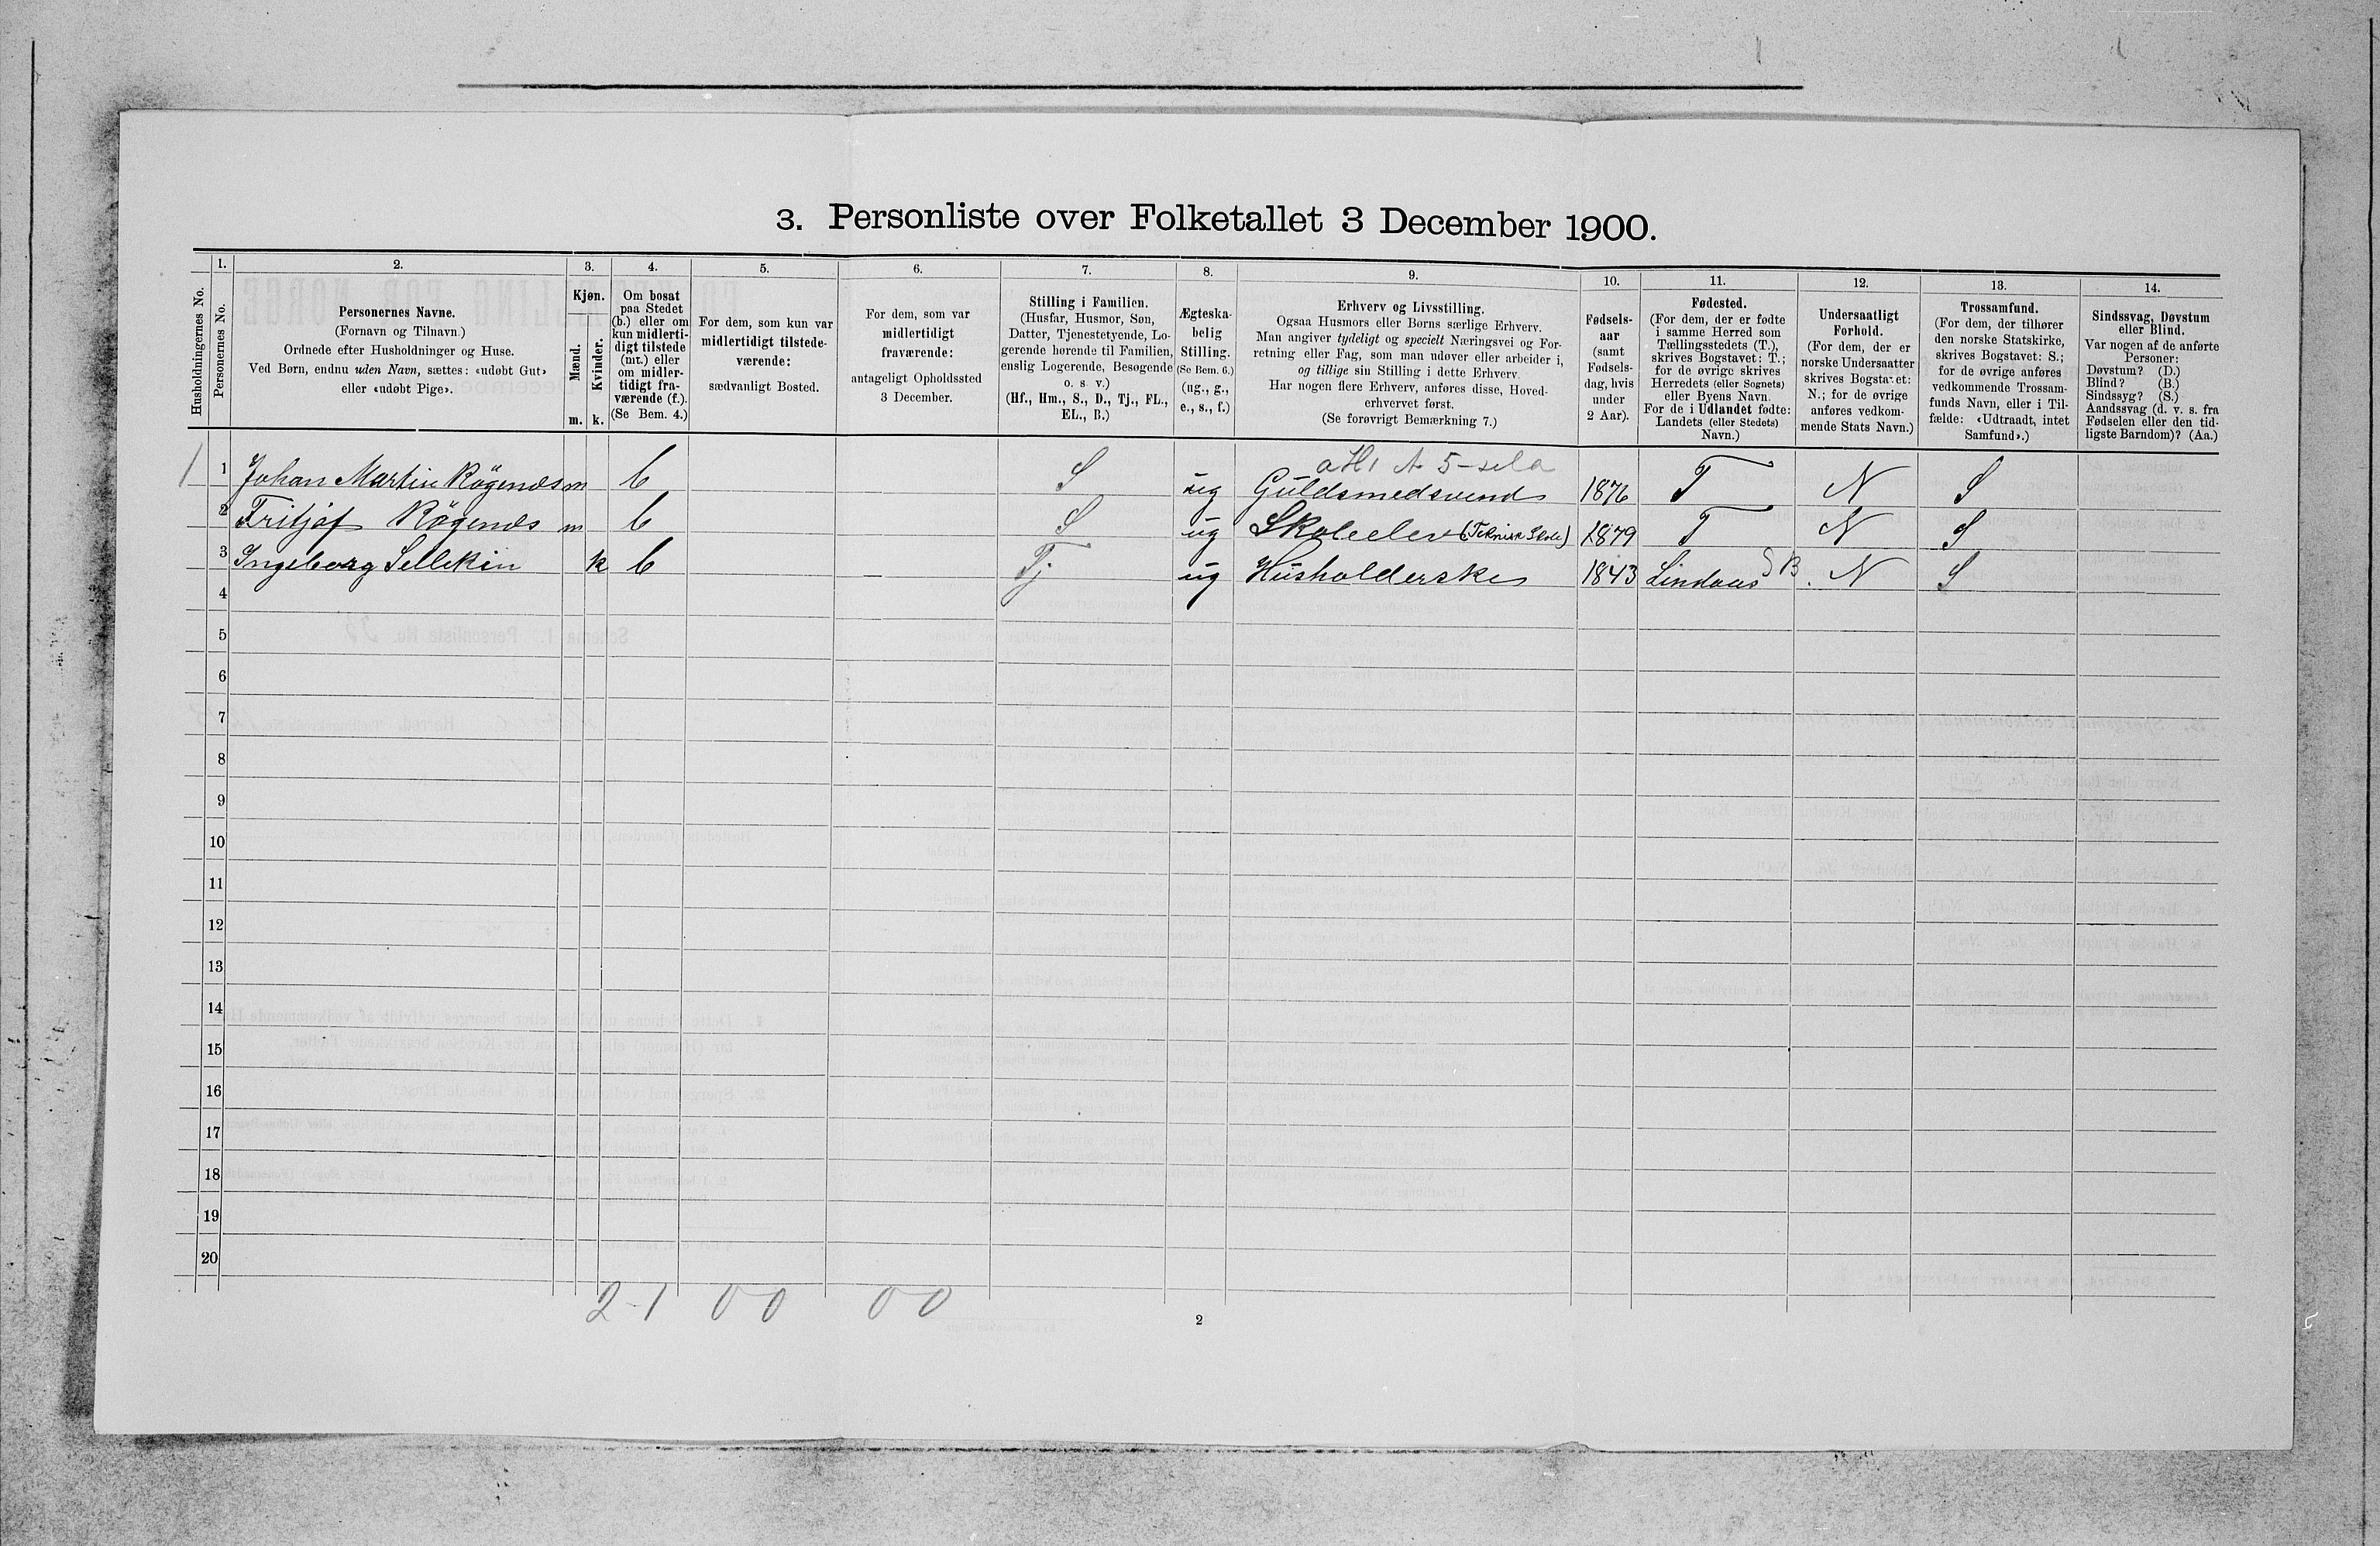 3. Personliste over Folketallet 3 December 1900.
1. 2. 3. 4. 5. 6. 7. 8. 9. 10. 11. 12. 13. 14.
Husholdningernes No.
Personernes No.
Personernes Navne.
(Fornavn og Tilnavn.)
Ordnede efter Husholdninger og Huse.
Ved Børn, endnu uden Navn, sættes: «udøbt Gut»
eller «udøbt Pige».
Kjøn.
Mænd.
Kvinder.
m. k.
Om bosat
paa Stedet
(b.) eller om
kun midlerti-
digt tilstede
(mt.) eller
om midler-
tidigt fra-
værende (f.).
(Se Bem. 4.)
For dem, som kun var
midlertidigt tilstede-
værende:
sædvanligt Bosted.
For dem, som var
midlertidigt
fraværende:
antageligt Opholdssted
3 December.
Stilling i Familien.
(Husfar, Husmor, Søn,
Datter, Tjenestetyende, Lo-
gerende hørende til Familien,
enslig Logerende, Besøgende
o. s. v.)
(Hf., Hm., S., D., Tj., FL.,
EL., B.)
Ægteska-
belig
Stilling.
(Se Bem. 6.)
(ug., g.,
e., s., f.)
Erhverv og Livsstilling.
Ogsaa Husmors eller Børns særlige Erhverv.
Man angiver tydeligt og specielt Næringsvei og For-
retning eller Fag, som man udøver eller arbeider i,
og tillige sin Stilling i dette Erhverv.
Har nogen flere Erhverv, anføres disse, Hoved-
erhvervet først.
(Se forøvrigt Bemærkning 7.)
Fødsels-
aar
(samt
Fødsels-
dag, hvis
under
2 Aar).
Fødested.
(For dem, der er fødte
i samme Herred som
Tællingsstedets (T.),
skrives Bogstavet: T.;
for de øvrige skrives
Herredets (eller Sognets)
eller Byens Navn.
For de i Udlandet fødte:
Landets (eller Stedets)
Navn.)
Undersaatligt
Forhold.
(For dem, der er
norske Undersaatter
skrives Bogstavet:
N.; for de øvrige
anføres vedkom-
mende Stats Navn.)
Trossamfund.
(For dem, der tilhører
den norske Statskirke,
skrives Bogstavet: S.;
for de øvrige anføres
vedkommende Trossam-
funds Navn, eller i Til-
fælde: «Udtraadt, intet
Samfund».)
Sindssvag, Døvstum
eller Blind.
Var nogen af de anførte
Personer:
Døvstum? (D.)
Blind? (B.)
Sindssyg? (S.)
Aandssvag (d. v. s. fra
Fødselen eller den tid-
ligste Barndom)? (Aa.)
1 1 Johan Martin Rögenæs m b S ug Guldsmedsvend 1876 T N S
2 Fritjof Rögenæs m b S ug Skoleelev (Teknisk Skole) 1879 T N S
3 Ingeborg Sellekin k b Tj ug Husholderske 1843 Lindaas S B. N S
4
5
6
7
8
9
10
11
12
13
14
15
16
17
18
19
20
2-1 0 0 0 0
2